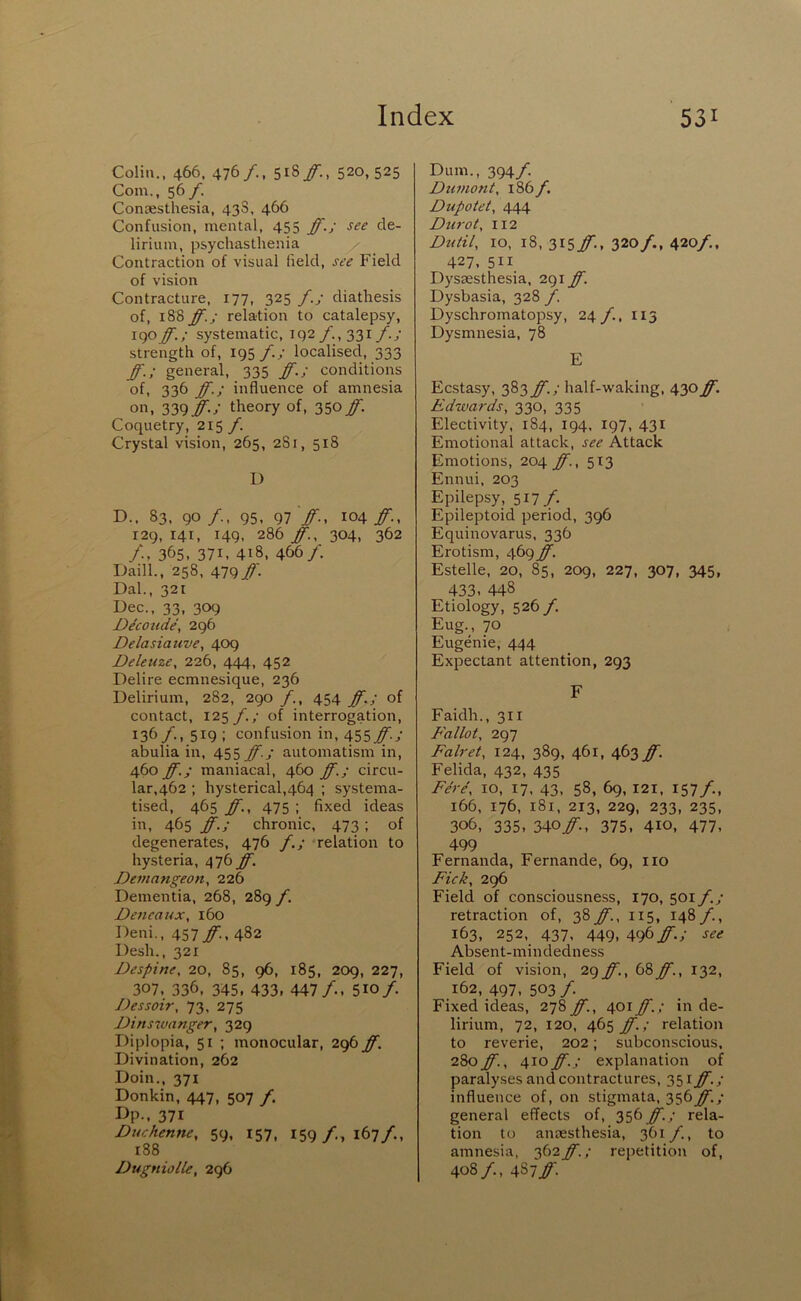 Index 531
Colin., 466, 476 f., 518 ff., 520, 525
Com., 56 f.
Conæsthesia, 438, 466
Confusion, mental, 455 ff.; see de-
lirium, psychasthenia
Contraction of visual field, see Field
of vision
Contracture, 177, 325 f.; diathesis
of, 188 ff.; relation to catalepsy,
190 ff.; systematic, 192 f., 331 f.;
strength of, 195 f.; localised, 333
ff.; general, 335 ff.; conditions
of, 336 ff.; influence of amnesia
on, 339 ff.; theory of, 350 ff.
Coquetry, 215 f.
Crystal vision, 265, 281, 518
D
D., 83, 90 f., 95, 97 ff., 104 ff.,
129, 141, 149, 286 ff., 304, 362
f., 365, 371, 418, 466 f.
Daill., 258, 479 ff.
Dal., 321
Dec., 33, 309
Découdé, 296
Delasiauve, 409
Deleuze, 226, 444, 452
Delire ecmnesique, 236
Delirium, 282, 290 f., 454 ff.; of
contact, 125 f.; of interrogation,
136 f., 519; confusion in, 455 ff.;
abulia in, 455 ff.; automatism in,
460 ff.; maniacal, 460 ff.; circu-
lar, 462; hysterical, 464; systema-
tised, 465 ff., 475; fixed ideas
in, 465 ff.; chronic, 473; of
degenerates, 476 f.; relation to
hysteria, 476 ff.
Demangeon, 226
Dementia, 268, 289 f.
Deneaux, 160
Deni., 457 ff., 482
Desh., 321
Despine, 20, 85, 96, 185, 209, 227,
307, 336, 345, 433, 447 f., 510 f.
Dessoir, 73, 275
Dinswanger, 329
Diplopia, 51; monocular, 296 ff.
Divination, 262
Doin., 371
Donkin, 447, 507 f.
Dp., 371
Duchenne, 59, 157, 159 f., 167 f.,
188
Dugniolle, 296
Dum., 394 f.
Dumont, 186 f.
Dupotet, 444
Durot, 112
Dutil, 10, 18, 315 ff., 320 f., 420 f.,
427, 511
Dysæsthesia, 291 ff.
Dysbasia, 328 f.
Dyschromatopsy, 24 f., 113
Dysmnesia, 78
E
Ecstasy, 383 ff.; half-waking, 430 ff.
Edwards, 330, 335
Electivity, 184, 194, 197, 431
Emotional attack, see Attack
Emotions, 204 ff., 513
Ennui, 203
Epilepsy, 517 f.
Epileptoid period, 396
Equinovarus, 336
Erotism, 469 ff.
Estelle, 20, 85, 209, 227, 307, 345,
433, 448
Etiology, 526 f.
Eug., 70
Eugénie, 444
Expectant attention, 293
F
Faidh., 311
Fallot, 297
Falret, 124, 389, 461, 463 ff.
Felida, 432, 435
Féré, 10, 17, 43, 58, 69, 121, 157 f.,
166, 176, 181, 213, 229, 233, 235,
306, 335, 340 ff., 375, 410, 477,
499
Fernanda, Fernande, 69, 110
Fick, 296
Field of consciousness, 170, 501 f.;
retraction of, 38 ff., 115, 148 f.,
163, 252, 437, 449, 496 ff.; see
Absent-mindedness
Field of vision, 29 ff., 68 ff., 132,
162, 497, 503 f.
Fixed ideas, 278 ff., 401 ff.; in de-
lirium, 72, 120, 465 ff.; relation
to reverie, 202; subconscious,
280 ff., 410 ff.; explanation of
paralyses and contractures, 351 ff.;
influence of, on stigmata, 356 ff.;
general effects of, 356 ff.; rela-
tion to anæsthesia, 361 f., to
amnesia, 362 ff.; repetition of,
408 f., 487 ff.